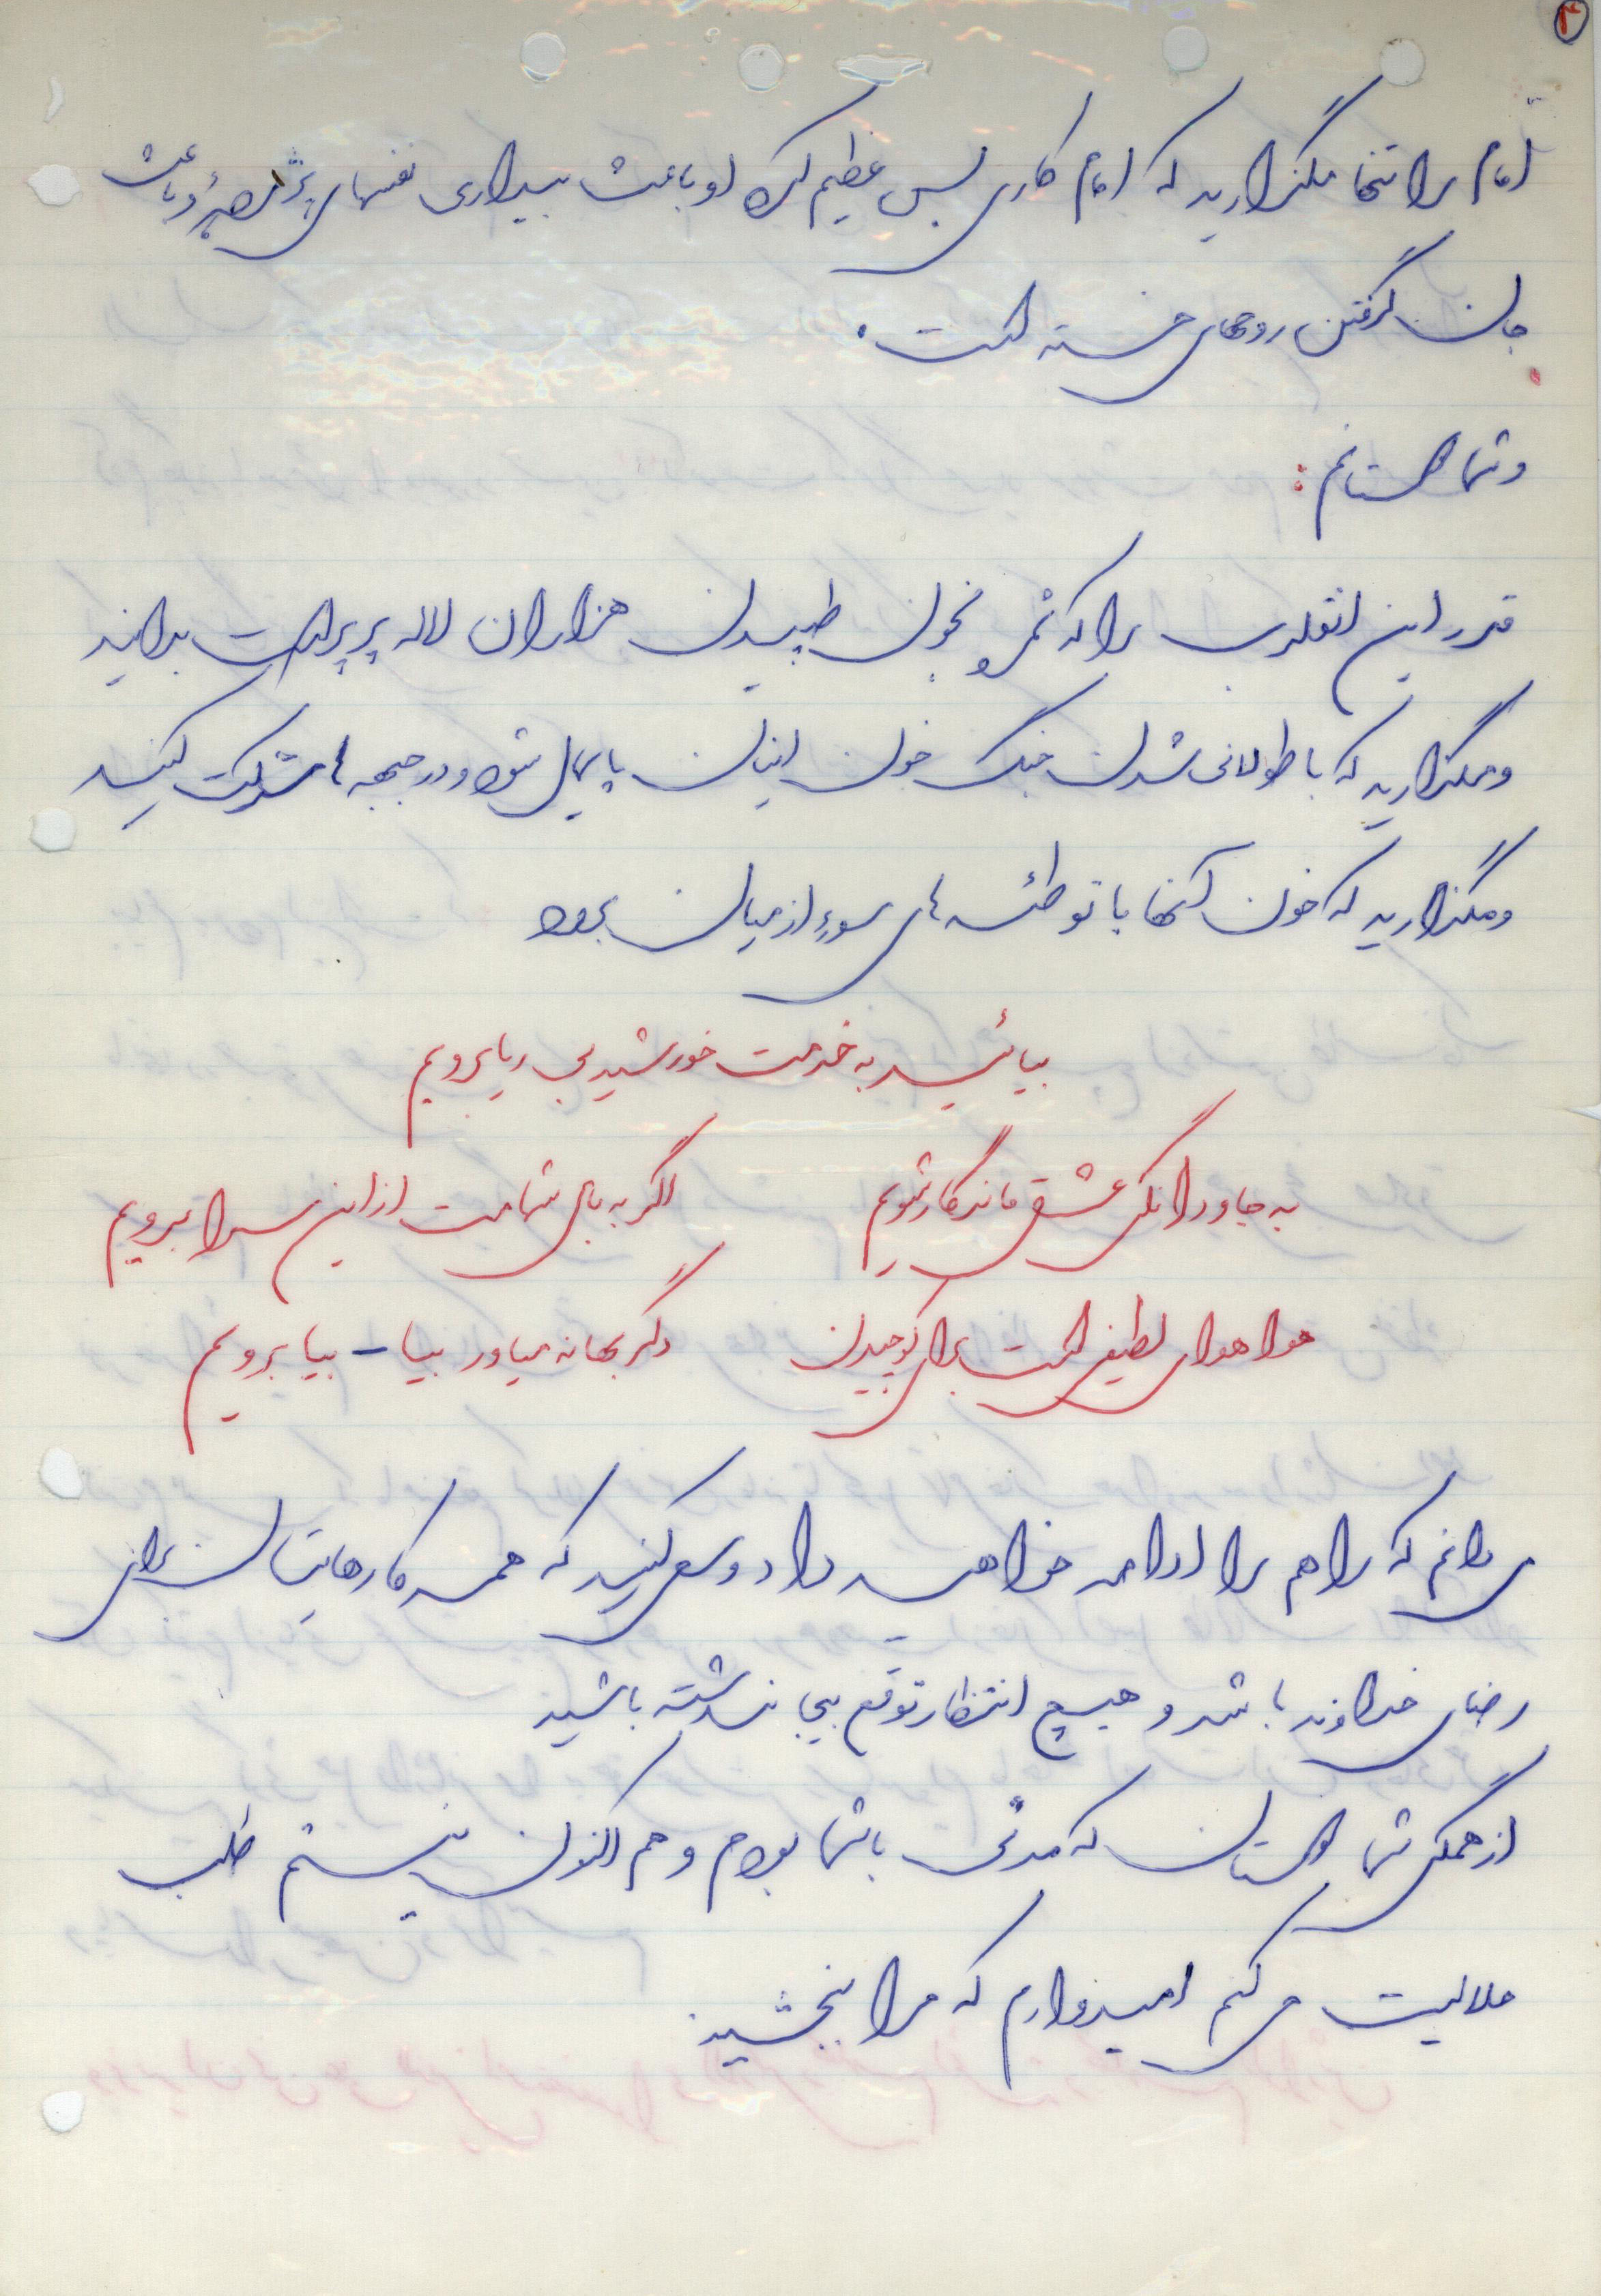 ۳
امام را تنها مگذارید که امام کاری بس عظیم کرد او باعث بیداری نفسهای پژمرده و باعث
جان گرفتن روحهای خسته است.
و شما دوستانم:
قدر این انقلاب را که ثمره بخون طپیدن هزاران لاله پرپر است بدانید
و مگذارید که با طولانی شدن جنگ خون اینان پایمال شود و در جبهه ها شرکت کنید
و مگذارید که خون آنها با توطئه های سوء از میان برود
بیائید به خدمت خورشید بی ریا برویم
به جاودانگی عشق ماندگار شویم اگر به بال شهامت از این سرا برویم
هوا هوای لطیفی است برای کوچیدن دگر بهانه میاور بیا - بیا برویم
می دانم که راهم را ادامه خواهید داد و سعی کنید که همه کارهایتان برای
رضای خداوند باشد و هیچ انتظار توقع بیجا نداشته باشید
از همگی شما دوستان که مدتی با شما بودم و هم اکنون نیستم طلب
حلالیت می کنم امیدوارم که مرا ببخشید